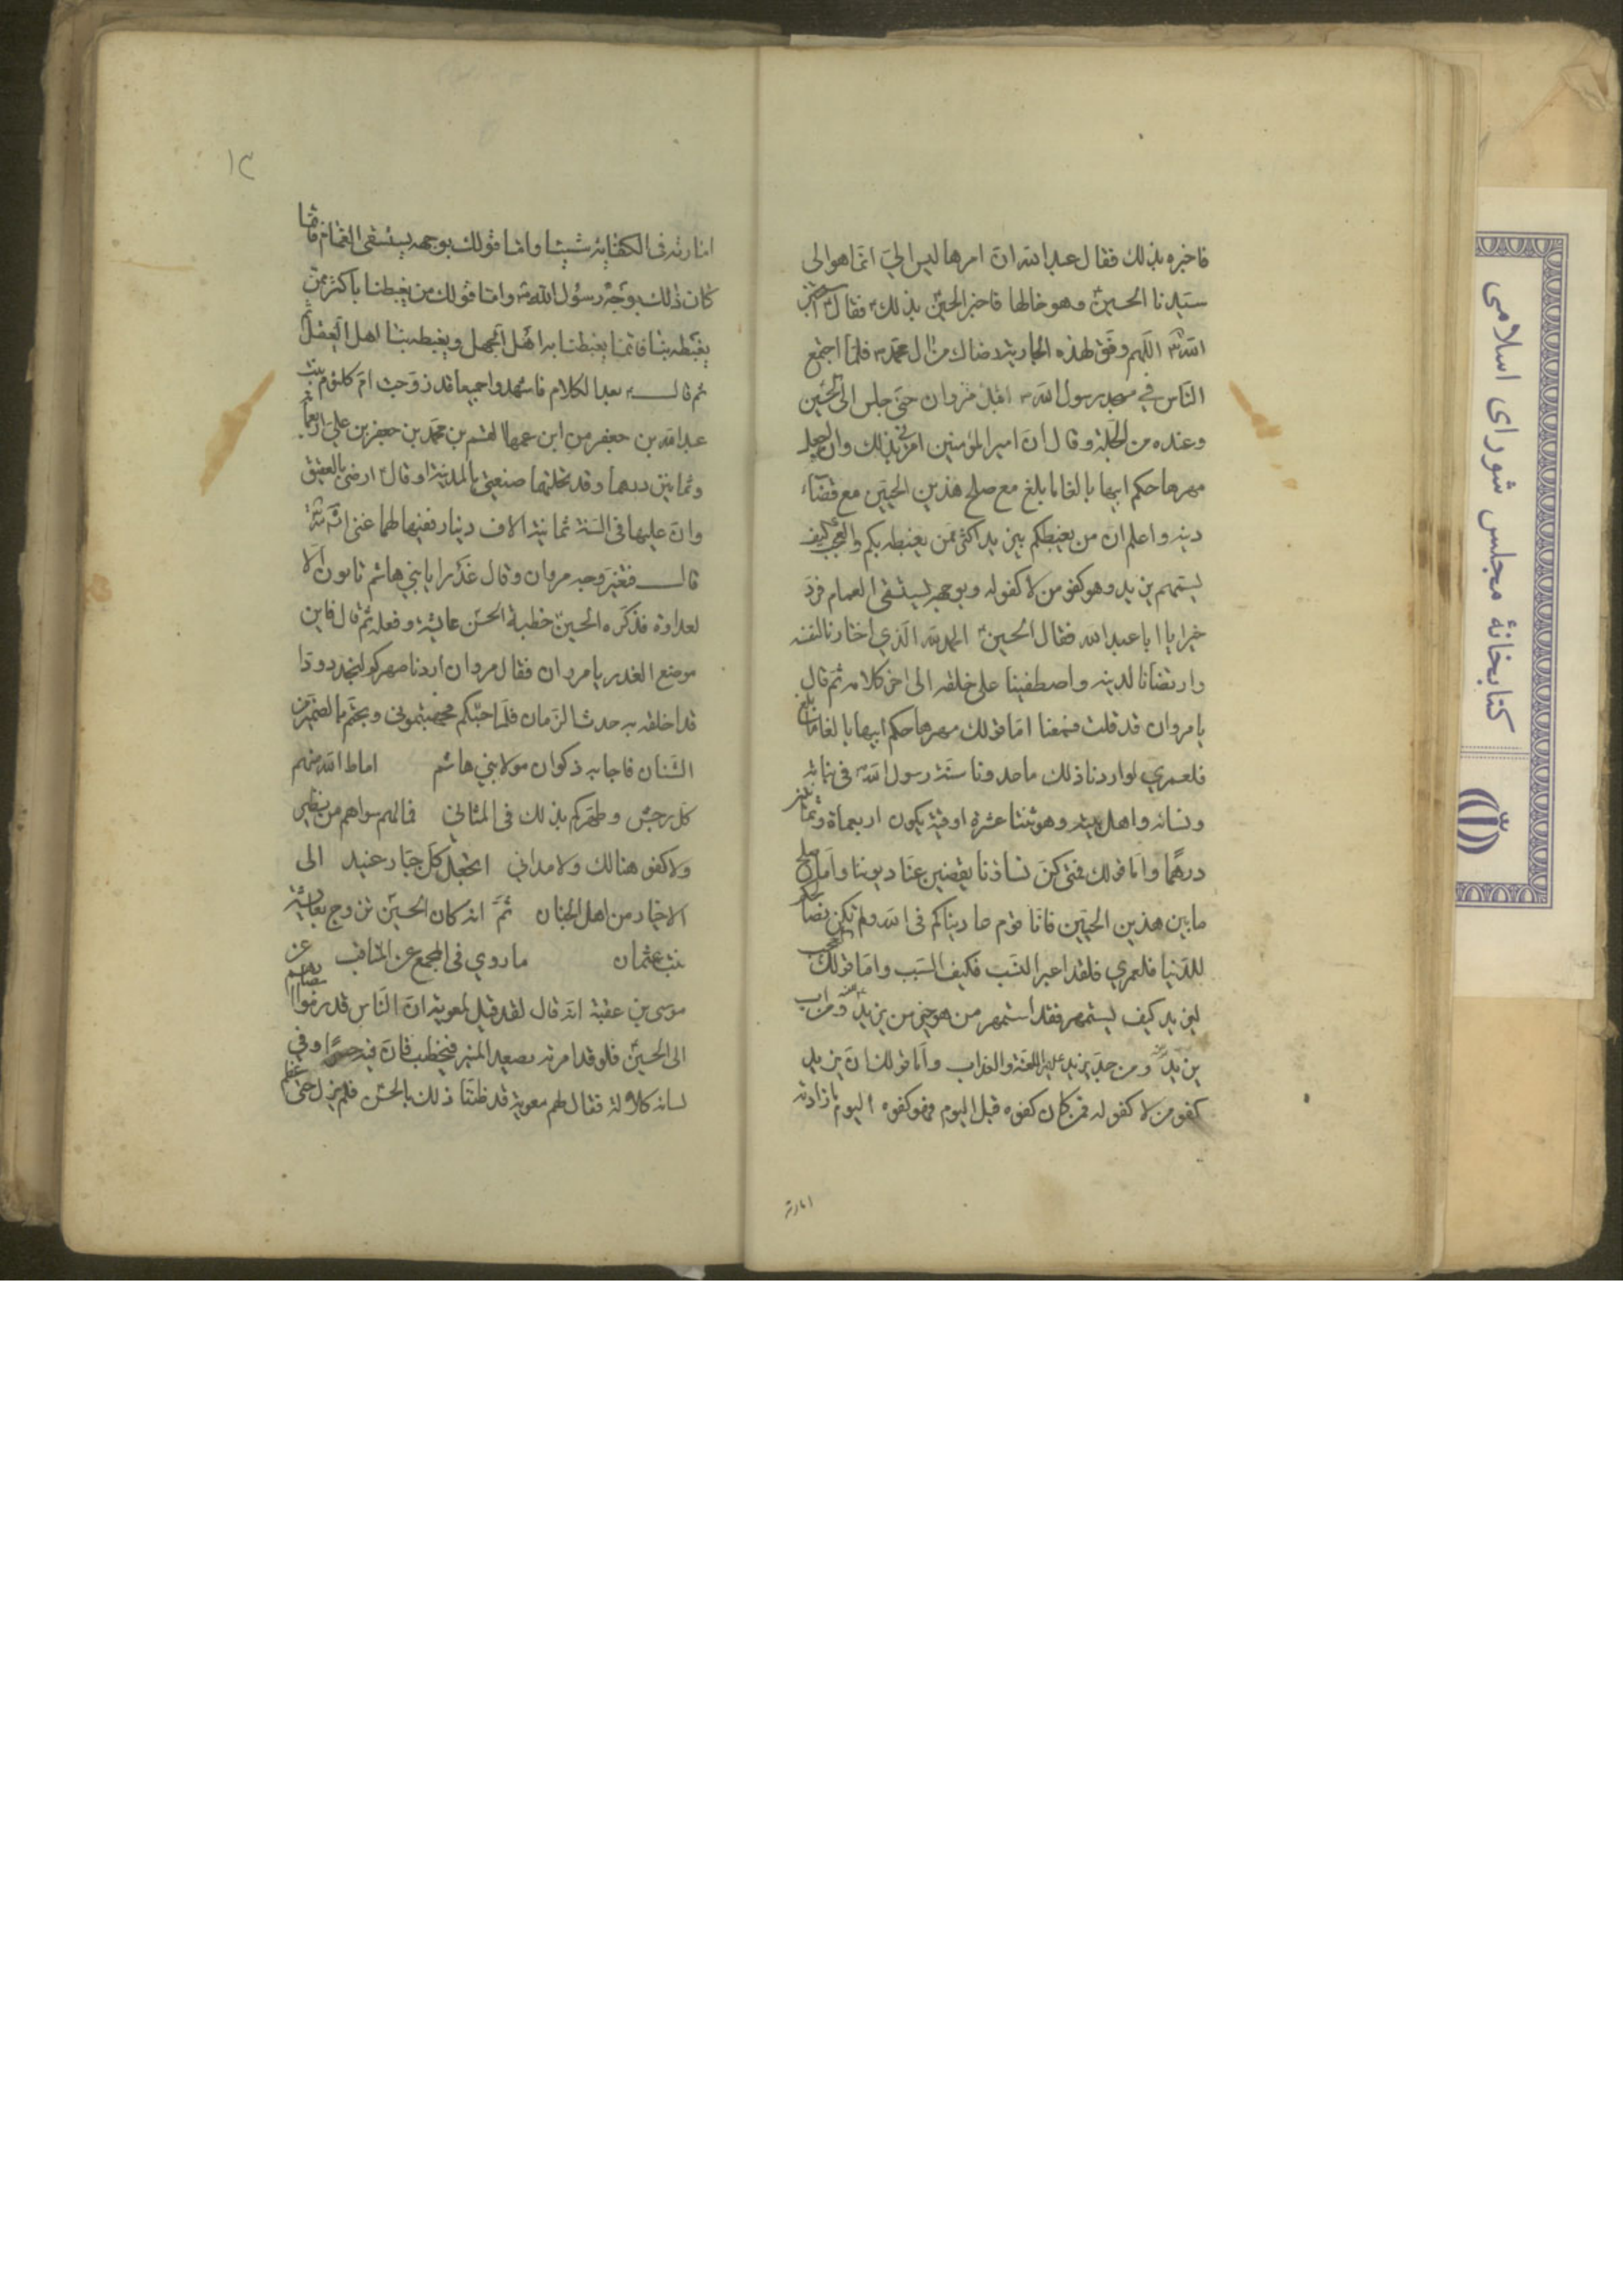 فاخبره بذلك فقال عبد الله ان امرها ليس الي انما هو الى
سيدنا الحسين وهو خالها فاخبر الحسين بذلك فقال استخير
الله اللهم وفق لهذه الجارية رضاك من ال محمد فلما اجتمع
الناس في مسجد رسول الله اقبل مروان حتى جلس الى الحسين
وعنده من الجلة وقال ان امير المؤمنين امرني بذلك وان اجعل
مهرها حكم ابيها بالغا ما بلغ مع صلح هذين الحيين مع قضاء
دينه واعلم ان من يغبطكم بيزيد اكثر ممن يغبطه بكم والعجب كيف
يستمهر يزيد وهو كفو من لا كفو له وبوجهه يستسقى الغمام فرد
خيرا يا ابا عبد الله فقال الحسين الحمد لله الذي اختارنا لنفسه
وارتضانا لدينه واصطفينا على خلقه الى اخر كلامه ثم قال
يا مروان قد قلت فسمعنا اما قولك مهرها حكم ابيها بالغا ما بلغ
فلعمري لو اردنا ذلك ما عدونا سنة رسول الله في بناته
ونسائه واهل بيته وهو ثنتا عشرة اوقية يكون اربعماة وثمانين
درهما واما قولك فمتى كن نساؤنا يقضين عنا ديوننا واما صلح
ما بين هذين الحيين فانا قوم عاديناكم في الله ولم نكن نصالحكم
للدنيا فلعمري فلقد اعيا النسب فكيف السبب واما قولك العجب
ليزيد كيف يستمهر فقد استمهر من هو خير من يزيد ومن اب
يزيد ومن جد يزيد عليه اللعنة والعذاب واما قولك ان يزيد
كفو من لا كفو له فمن كان كفوه قبل اليوم فهو كفوه اليوم ما زادته
امارته
١٣
امارته في الكفاية شيئا واما قولك بوجهه يستسقى الغمام فانما
كان ذلك بوجه رسول الله واما قولك من يغبطنا به اكثر ممن
يغبطه بنا فانما يغبطنا به اهل الجهل ويغبطه بنا اهل العقل
ثم قال بعد الكلام فاشهدوا جميعا قد زوجت ام كلثوم بنت
عبد الله بن جعفر من ابن عمها القسم بن محمد بن جعفر بن علي اربعمأة
وثمانين درهما وقد نحلتها ضيعتي بالمدينة او قال ارضي بالعقيق
وان عليها في السنة ثمانية الاف دينار ففيها لهما غنى انشاء الله
قال فتغير وجه مروان وقال غدرا يا بني هاشم تابون الا
لعداوة فذكره الحسين خطبة الحسن عايشة وفعله ثم قال فاين
موضع الغدر يا مروان فقال مروان اردنا صهركم لنجد ودا
قد اخلقه به حدث الزمان فلما جئتكم فجبهتموني وبحتم بالضمير من
الشنان فاجابه ذكوان مولا بني هاشم اماط الله منهم
كل رجس وطهركم بذلك في المثاني فمالهم سواهم من نظير
ولا كفو هنالك ولا مداني اتجعل كل جبار عنيد الى
الاخيار من اهل الجنان ثم انه كان الحسين تزوج بعايشة
بنت عثمان ما روي في المجمع عن المناقب عن
موسى بن عقبة انه قال لقد قيل لمعوية ان الناس قد رموا ابصارهم
الى الحسين فلو قد امرته يصعد المنبر فيخطب فان فيه حصرا وفي
لسانه كلالة فقال لهم معوية قد ظننا ذلك بالحسن فلم يزل حتى عظم
كتابخانهٔ مجلس شورای اسلامی